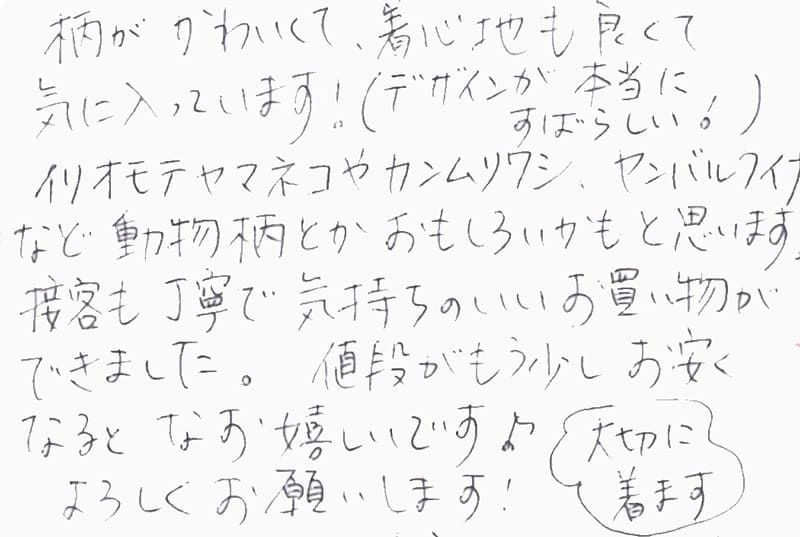 柄がかわいくて、着心地も良くて
気に入っています!(デザインが本当に
すばらしい!)
イリオモテヤマネコやカンムリワシ、ヤンバルクイナ
など動物柄とかおもしろいかもと思います。
接客も丁寧で気持ちのいいお買い物が
できました。値段がもう少しお安く
なるとなお嬉しいです♪
よろしくお願いします!
大切に
着ます